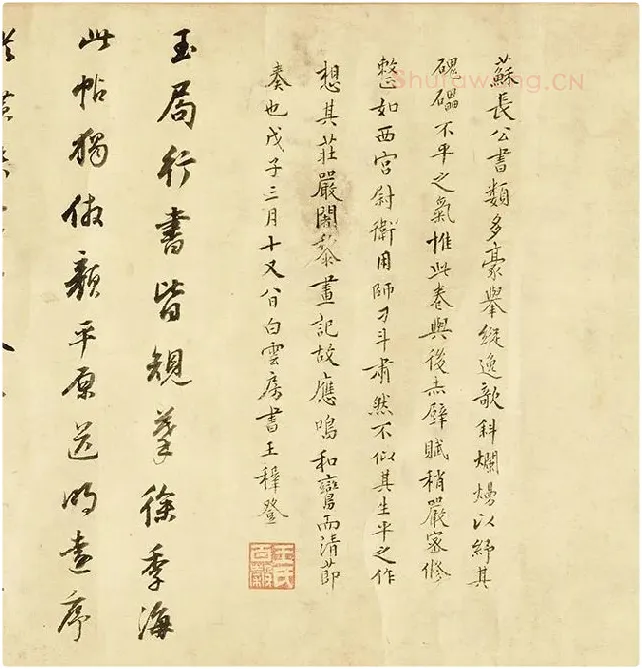 蘇長公書類多豪舉縱逸欹斜爛熳以紓其
磈礧不平之氣惟此卷與後赤壁賦稍嚴密修
整如西宮尉衛用師刁斗肅然不似其生平之作
想其莊嚴閑黍畫記故應鳴和鸞而清節
奏也戊子三月十又八日白雲房書王穉登
王氏百穀
玉局行書皆規摹徐季海
此帖獨倣顏平原送明遠序
Shufawang.CN